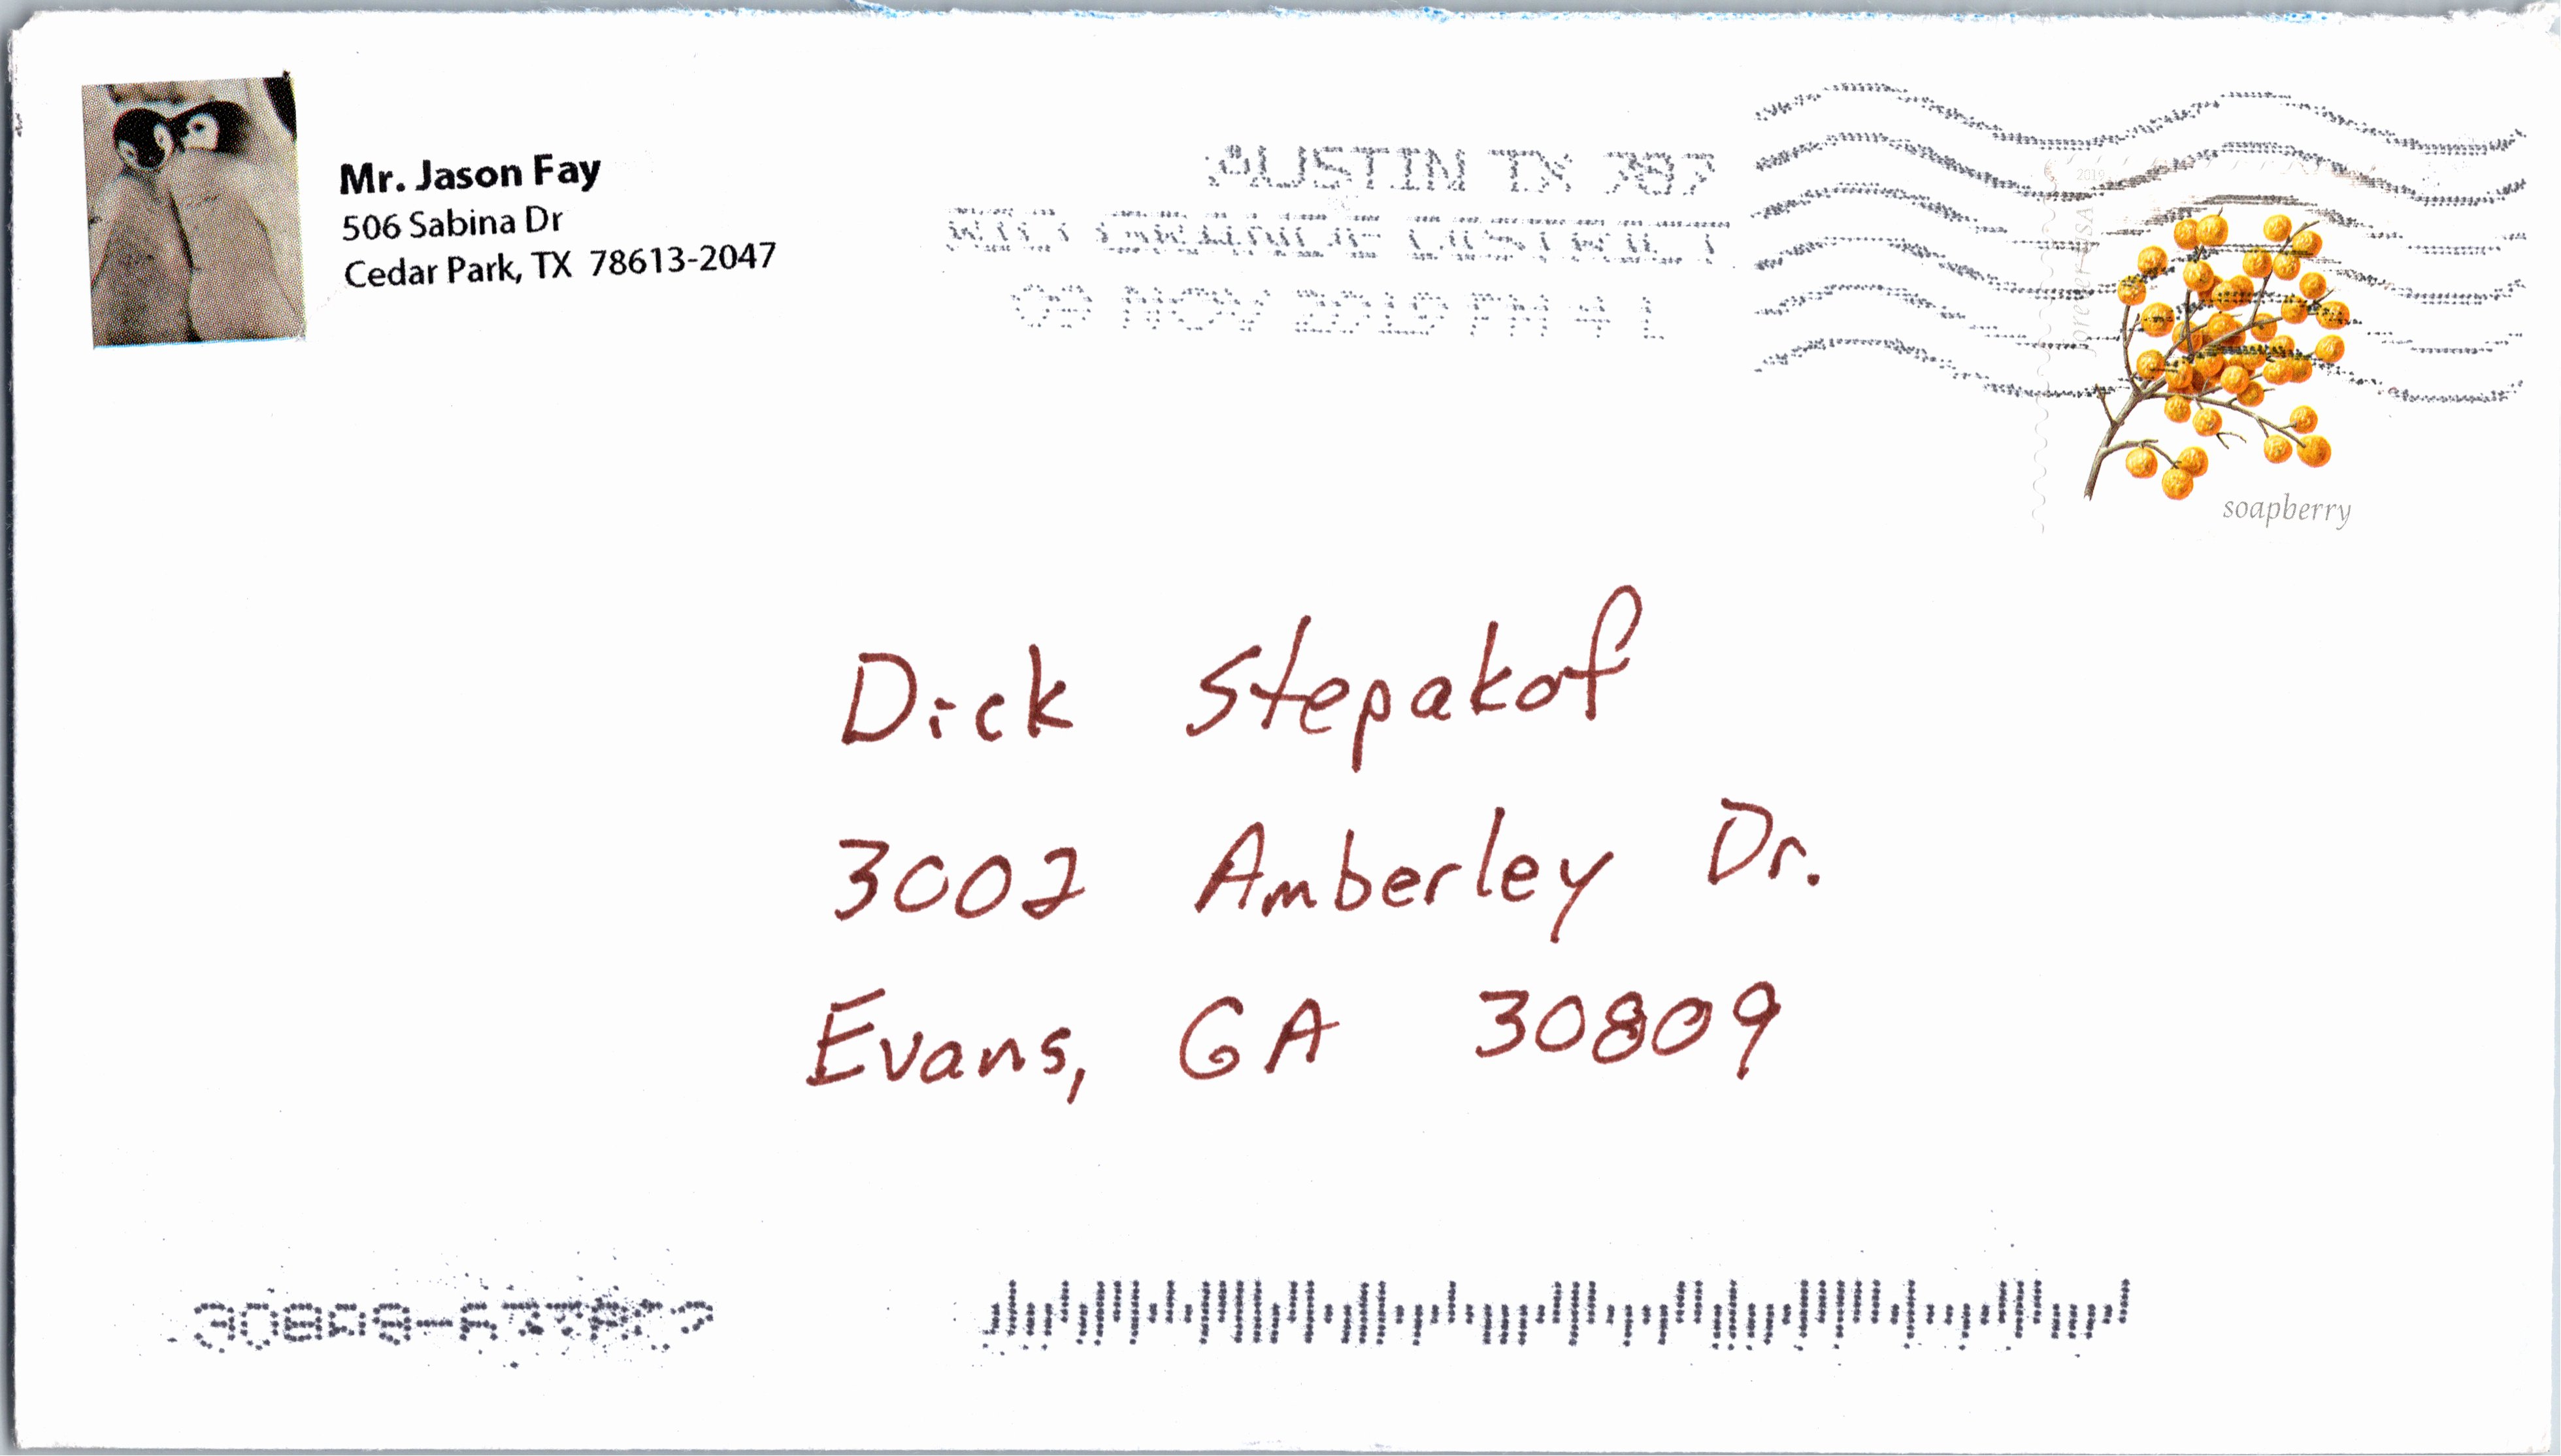 Mr. Jason Fay
506 Sabina Dr
Cedar Park, TX 78613-2047
AUSTIN TX 787
RIO GRANDE DISTRICT
09 NOV 2019 PM 4 L
2019
forever USA
soapberry
Dick Stepakof
3002 Amberley Dr.
Evans, GA 30809